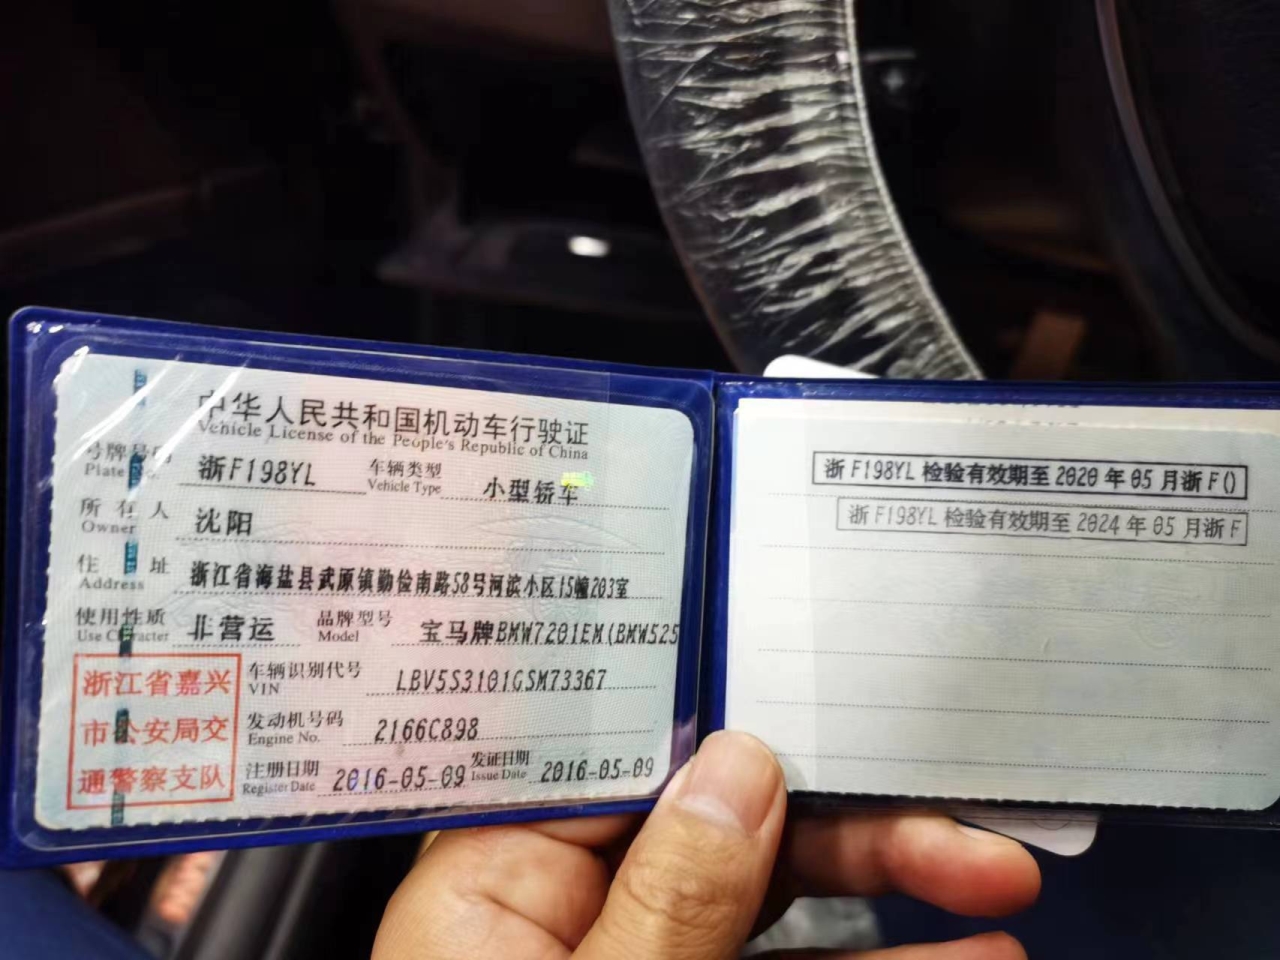 中华人民共和国机动车行驶证
Vehicle License of the People's Republic of China
号牌号码 浙F198YL 车辆类型 小型轿车
Plate No. Vehicle Type
所有人 沈阳
Owner
住址 浙江省海盐县武原镇勤俭南路58号河滨小区15幢203室
Address
使用性质 非营运 品牌型号 宝马牌BMW7201EM(BMW525
Use Character Model
浙江省嘉兴
市公安局交
通警察支队
车辆识别代号 LBV5S3101GSM73367
VIN
发动机号码 2166C898
Engine No.
注册日期 2016-05-09 发证日期 2016-05-09
Register Date Issue Date
浙F198YL 检验有效期至 2020 年 05 月浙F()
浙F198YL 检验有效期至 2024 年 05 月浙F